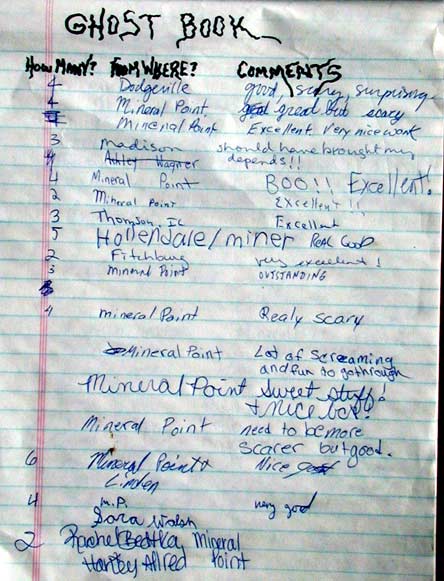 GHOST BOOK
HOW MANY? FROM WHERE? COMMENTS
4 Dodgeville good, scary, surprising
4 Mineral Point great but scary
Mineral Point Excellent Very nice work
3 Madison should have brought my
4 Ashley Wagner depends!!
4 Mineral Point BOO!! Excellent!
2 Mineral Point Excellent!!
3 Thomson, IL Excellent
5 Hollendale/miner Real Good
2 Fitchburg very excellent!
3 Mineral Point OUTSTANDING
4 mineral Point Realy scary
Mineral Point Lot of Screaming
and fun to go through
Mineral Point Sweet Stuff!
+ Nice
Mineral Point need to be more
scarer but good.
6 Mineral Point Nice
Linden
4 M.P. very good
Sara Walsh
2 Rachel Mineral
Allred Point